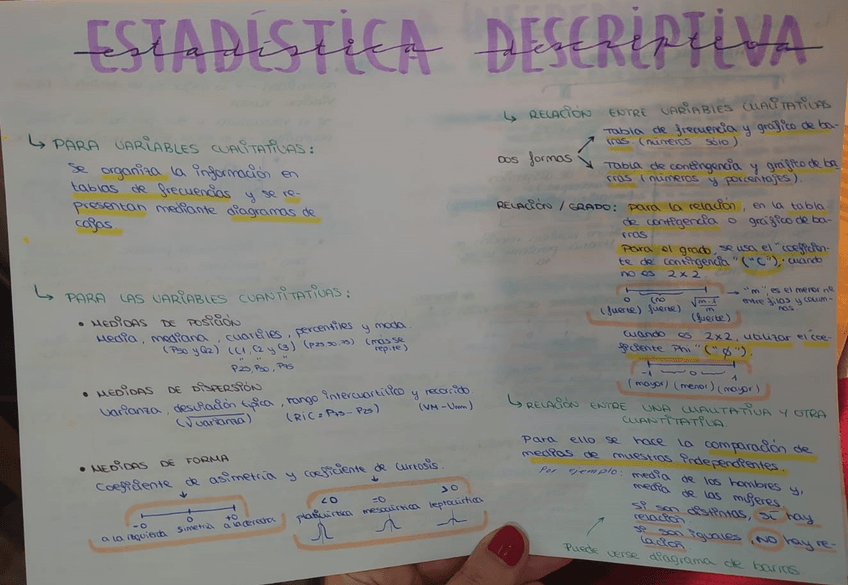 ESTADÍSTICA DESCRIPTIVA
estadística descriptiva
↳ PARA VARIABLES CUALITATIVAS:
Se organiza la información en
tablas de frecuencias y se re-
presentan mediante diagramas de
cajas
↳ PARA LAS VARIABLES CUANTITATIVAS:
• MEDIDAS DE POSICIÓN
Media, mediana, cuartiles, percentiles y moda.
(P50 y Q2) (C1, C2 y C3) (mas se
repite)
P25, P50, P75
• MEDIDAS DE DISPERSIÓN
Varianza, desviación típica, rango intercuartílico y recorrido
(√varianza) (RIC = P75 - P25) (VM - Vmin)
• MEDIDAS DE FORMA
Coeficiente de asimetría y coeficiente de curtosis.
-0 0 +0
a la izquierda simetría a la derecha
<0 =0 >0
platicúrtica mesocúrtica leptocúrtica
↳ RELACIÓN ENTRE VARIABLES CUALITATIVAS
DOS formas
Tabla de frecuencia y gráfico de ba-
rras. (números solo)
Tabla de contingencia y gráfico de ba-
rras (números y porcentajes).
RELACIÓN / GRADO: para la relación, en la tabla
de contigencia o gráfico de ba-
rras
Para el grado, se usa el "coeficien-
te de contingencia" ("C"), cuando
no es 2x2
0 √m-1/m
(fuerte) (no fuerte) (fuerte)
→ "m", es el menor nº
entre filas y colum-
nas
Cuando es 2x2, utilizar el coe-
ficiente Phi "("φ").
-1 0 1
(mayor) (menor) (mayor)
↳ RELACIÓN ENTRE UNA CUALITATIVA Y OTRA
CUANTITATIVA
Para ello se hace la comparación de
medias de muestras independientes.
Por ejemplo: media de los hombres y,
media de las mujeres
si son distintas, SÍ hay
relación
si son iguales, NO hay re-
lación
Puede verse diagrama de barras